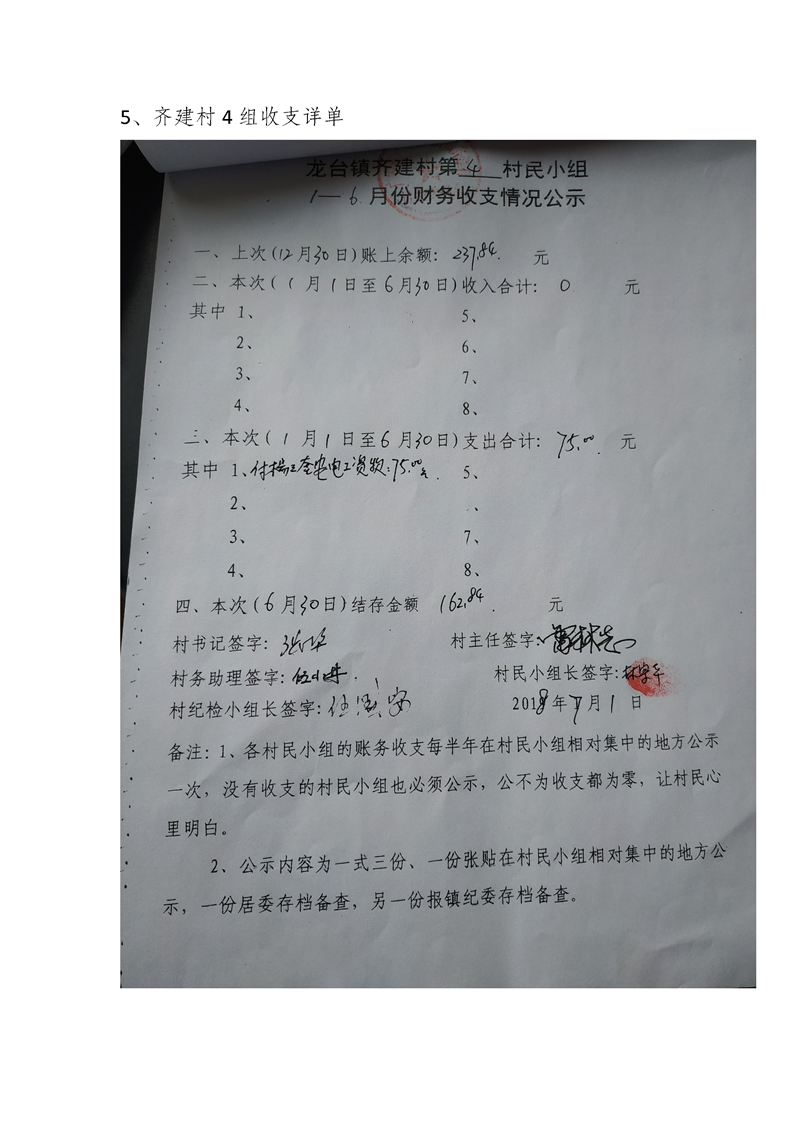 5、齐建村 4 组收支详单
龙台镇齐建村第 4 村民小组
1—6 月份财务收支情况公示
一、上次(12月30日)账上余额: 237.84. 元
二、本次( 1 月 1 日至 6 月 30 日)收入合计: 0 元
其中 1、 5、
2、 6、
3、 7、
4、 8、
三、本次( 1 月 1 日至 6 月 30 日)支出合计: 75.00. 元
其中 1、付 电工资 :75.00元. 5、
2、 、
3、 7、
4、 8、
四、本次(6 月 30 日)结存金额 162.84. 元
村书记签字: 村主任签字:
村务助理签字: 村民小组长签字:
村纪检小组长签字: 2018 年 7 月 1 日
备注:1、各村民小组的账务收支每半年在村民小组相对集中的地方公示
一次,没有收支的村民小组也必须公示,公不为收支都为零,让村民心
里明白。
2、公示内容为一式三份、一份张贴在村民小组相对集中的地方公
示,一份居委存档备查,另一份报镇纪委存档备查。